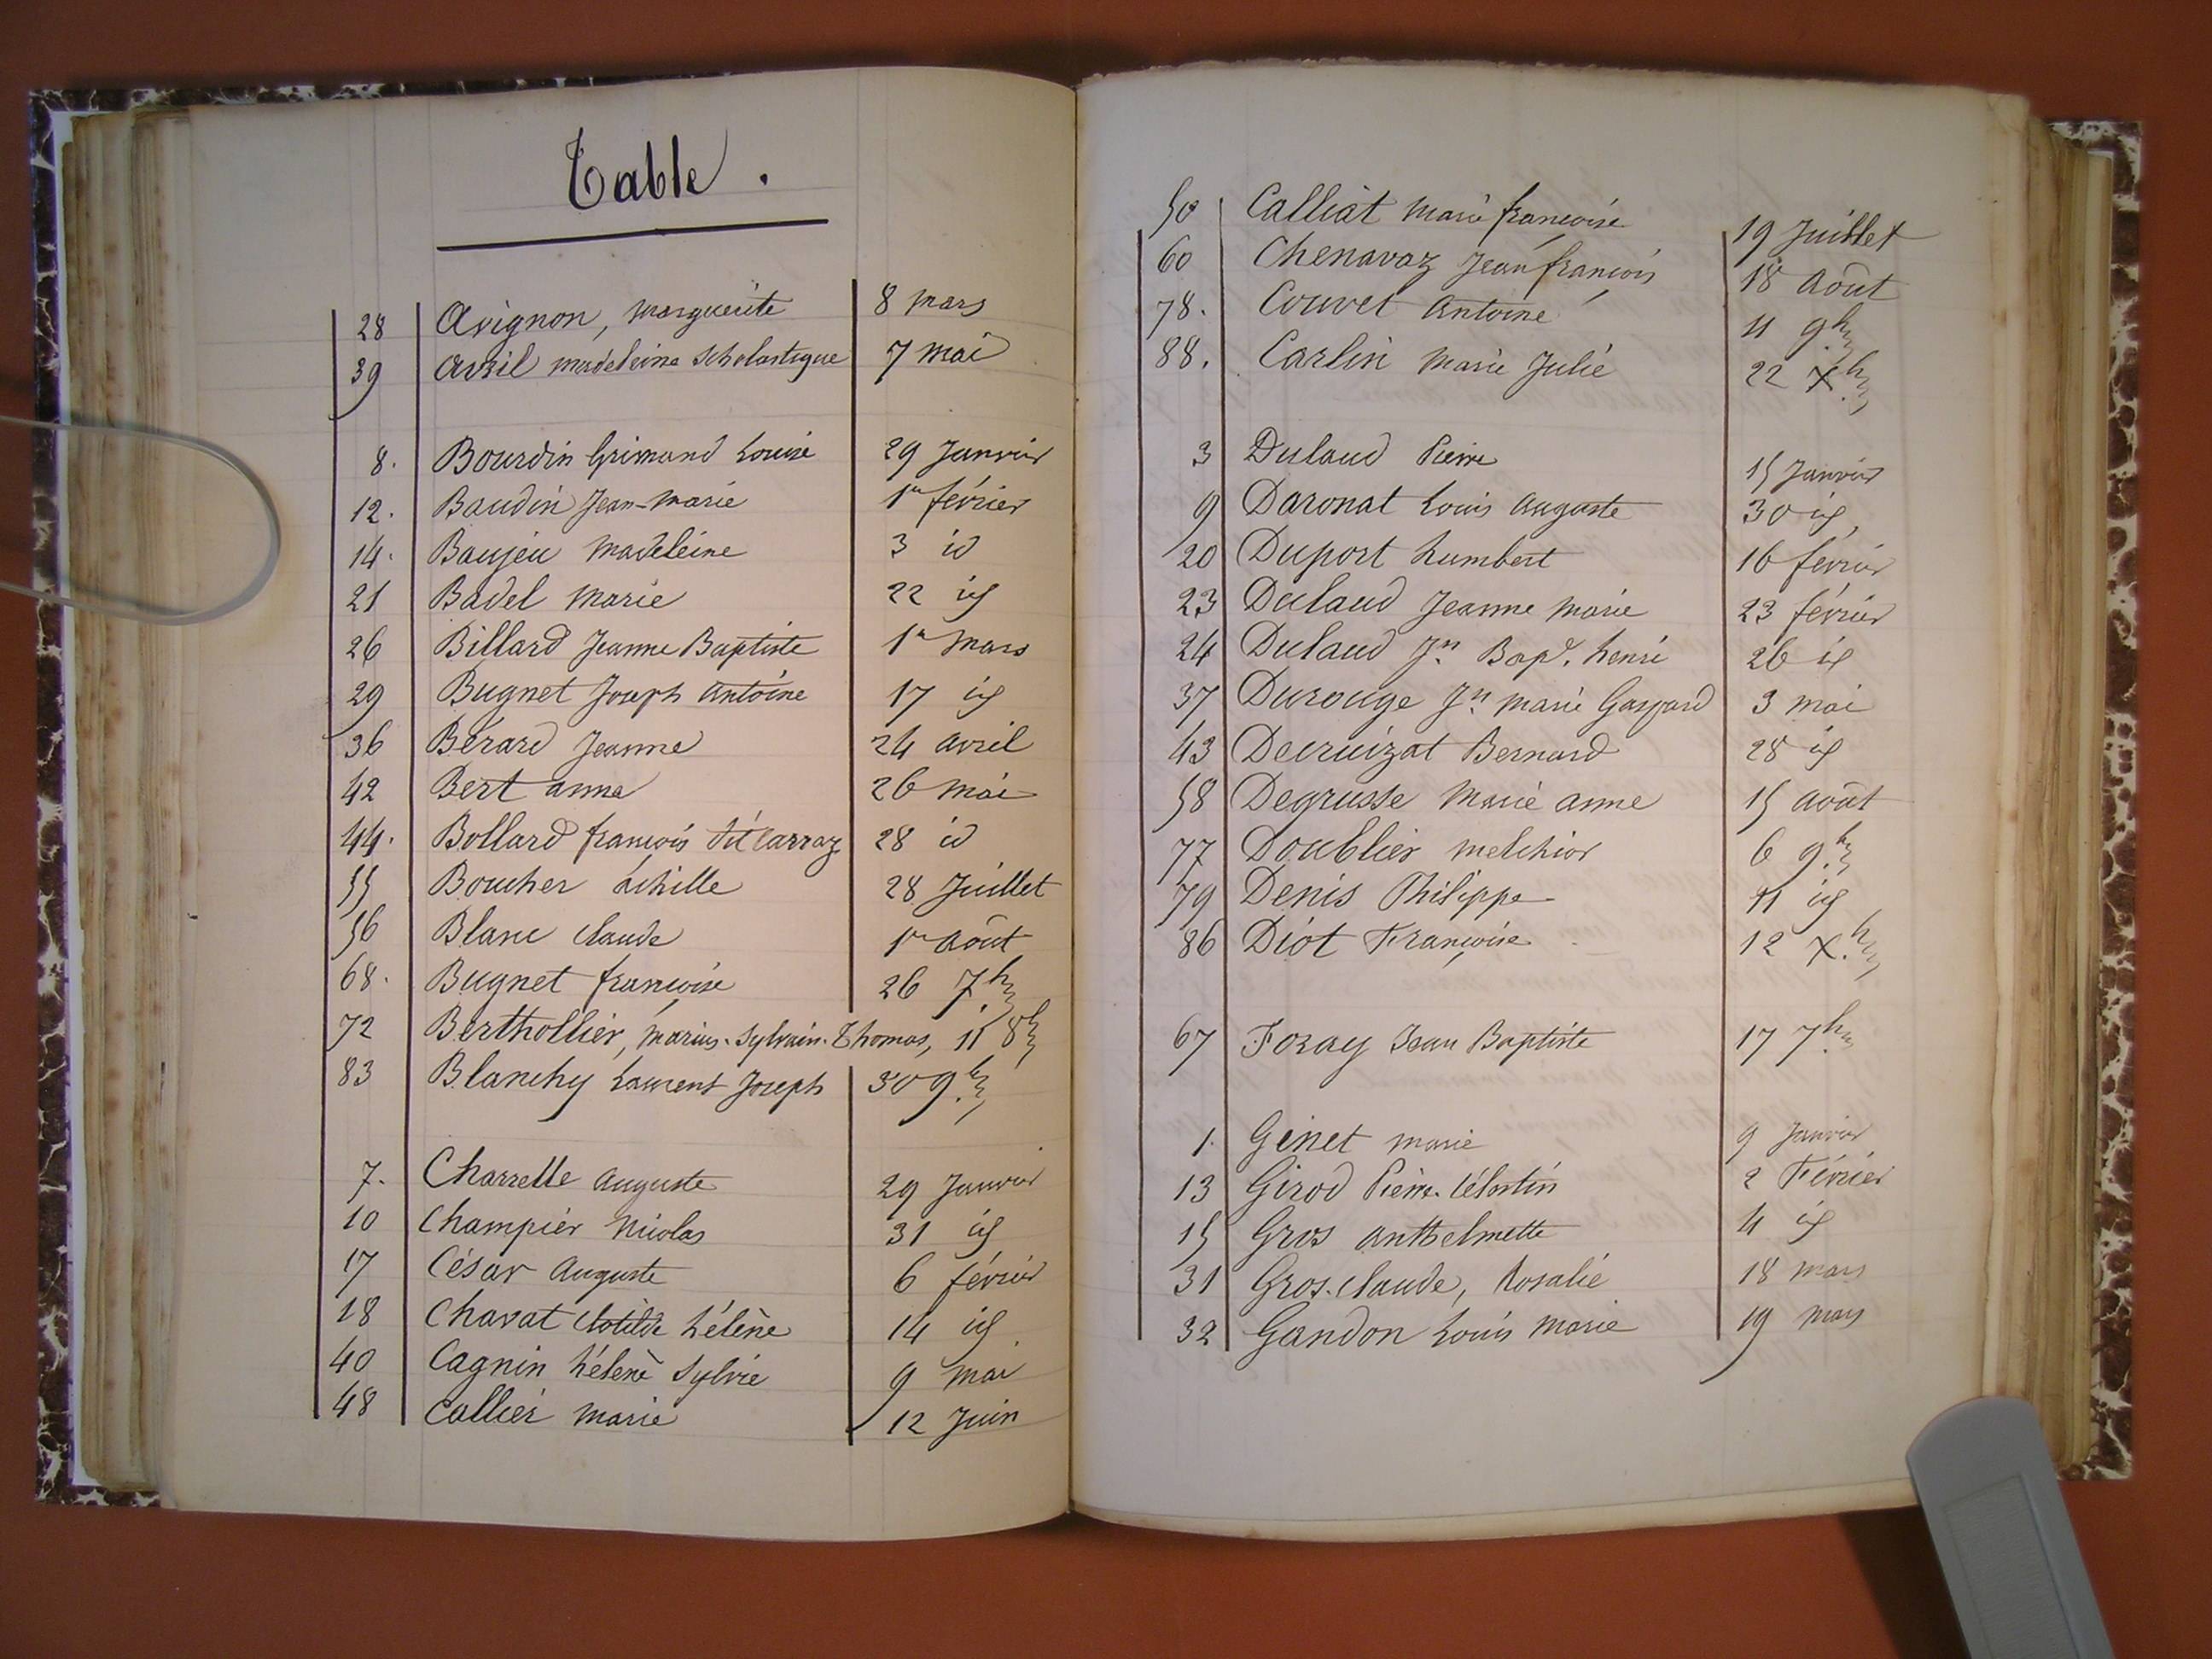 Table.
28 Avignon, Marguerite 8 Mars
39 Avril Madeleine Scholastique 7 Mai
8. Bourdin Grimand Louise 29 Janvier
12. Baudin Jean-Marie 1er février
14. Baujeu Madeleine 3 id
21 Badel Marie 22 id
26 Billard Jeanne Baptiste 1er Mars
29 Bugnet Joseph Antoine 17 id
36 Bérard Jeanne 24 avril
42 Bert anna 26 Mai
44. Bollard françois dit Carraz 28 id
55 Boucher Achille 28 Juillet
56 Blanc Claude 1er Août
68. Bugnet françoise 26 7bre
72 Berthollier, Marius-Sylvain-Thomas, 11 8bre
83 Blanchy Laurent Joseph 30 9bre
7. Charrelle Auguste 29 Janvier
10 Champier Nicolas 31 id
17 César Auguste 6 février
18 Chavat Clotilde Hélène 14 id
40 Cagnin hélène Sylvie 9 mai
48 Callier Marie 12 Juin
50 Calliat Marie françoise 19 Juillet
60 Chenavaz Jean françois 18 Août
78. Couvet Antoine 11 9bre
88. Carlin Marie Julie 22 Xbre
3 Dulaud Pierre 15 Janvier
9 Daronat Louis Auguste 30 id
20 Duport humbert 16 février
23 Dulaud Jeanne Marie 23 février
24 Dulaud Jn Bapt. henri 26 id
37 Durouge Jn Marie Gaspard 3 mai
43 Decruizat Bernard 28 id
58 Degrusse Marie anne 15 août
77 Doublier Melchior 6 9bre
79 Denis Philippe 11 id
86 Diot Françoise 12 Xbre
67 Foray Jean Baptiste 17 7bre
1. Ginet Marie 9 Janvier
13 Girod Pierre-Célestin 2 Février
15 Gros Anthelmette 4 id
31 Gros-Claude, Rosalie 18 mars
32 Gandon Louis Marie 19 mars